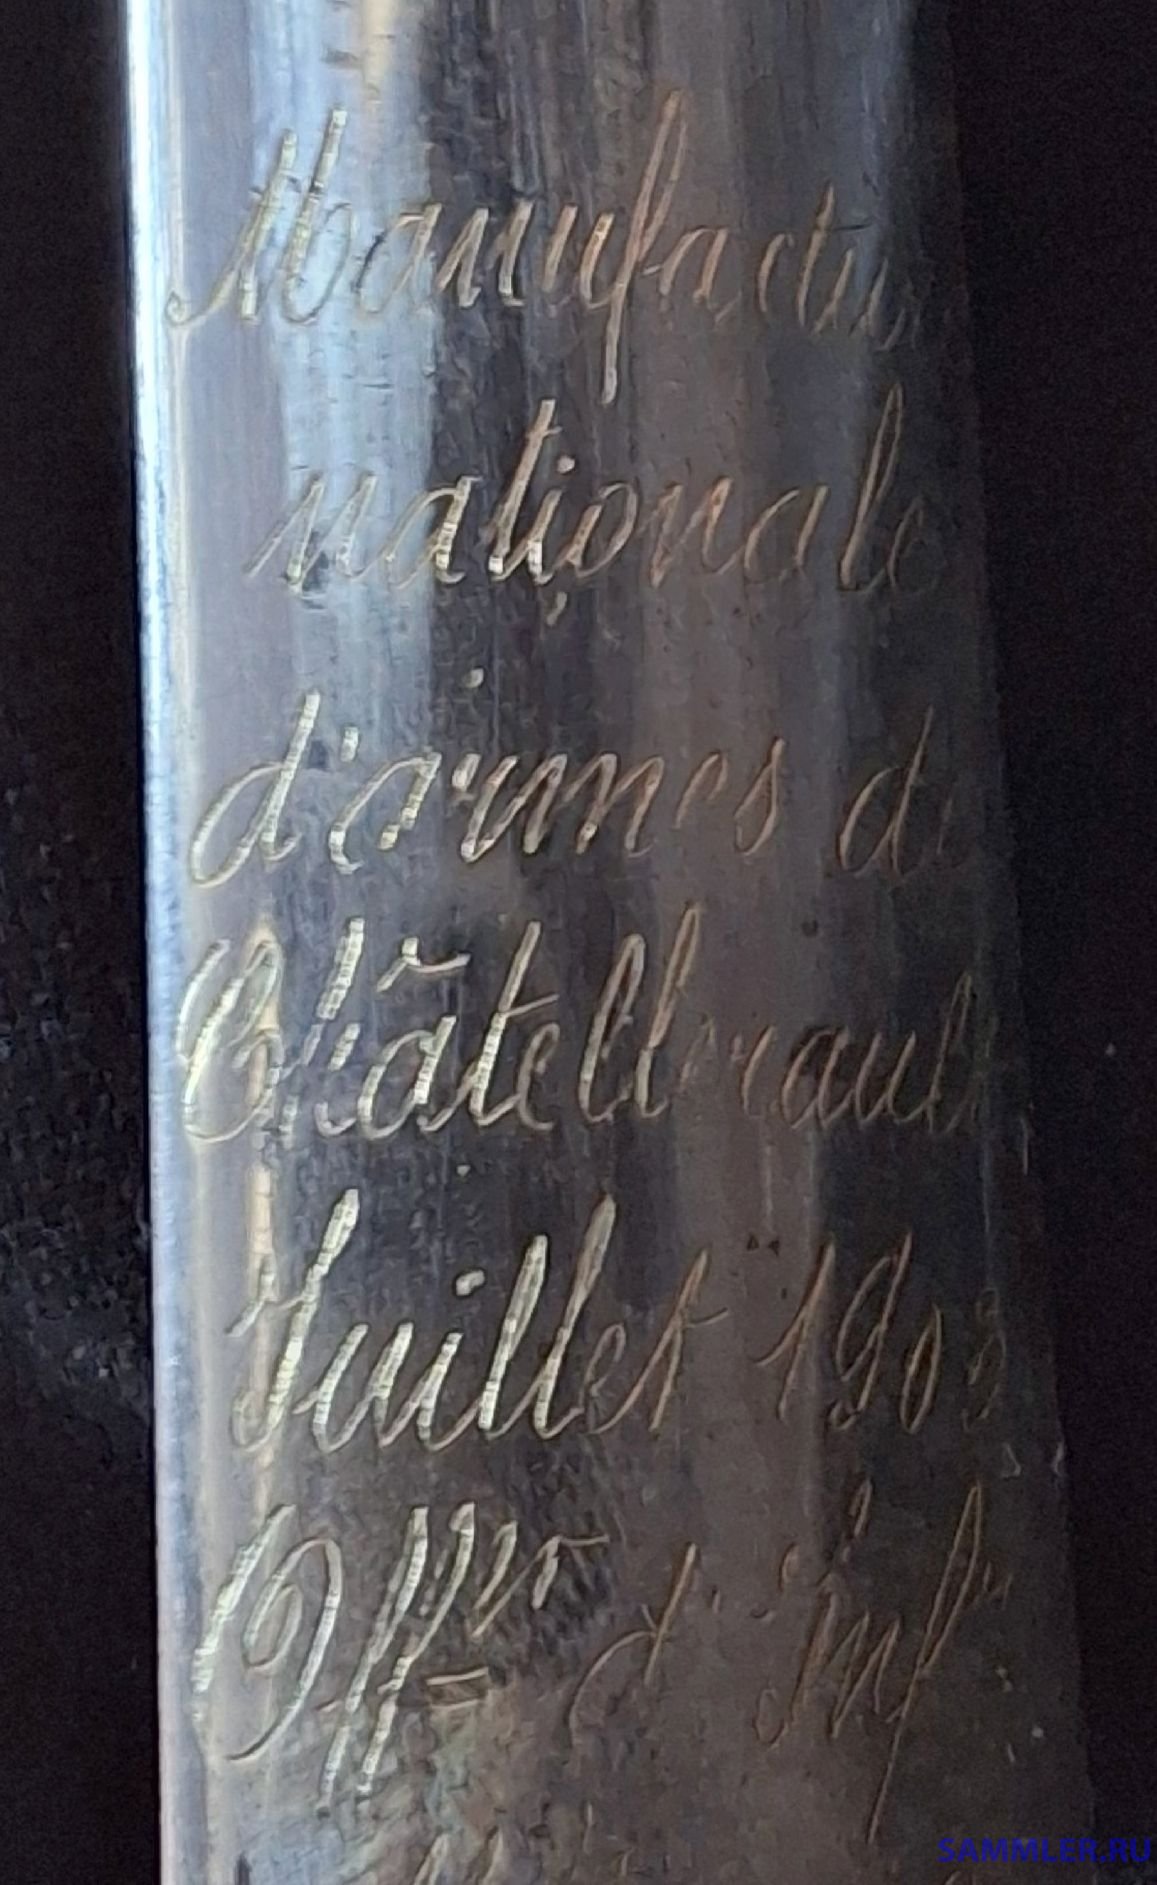 Manufacture
nationale
d'armes de
Châtellerault
Juillet 1903
Off.er d'Inf.ie
SAMMLER.RU